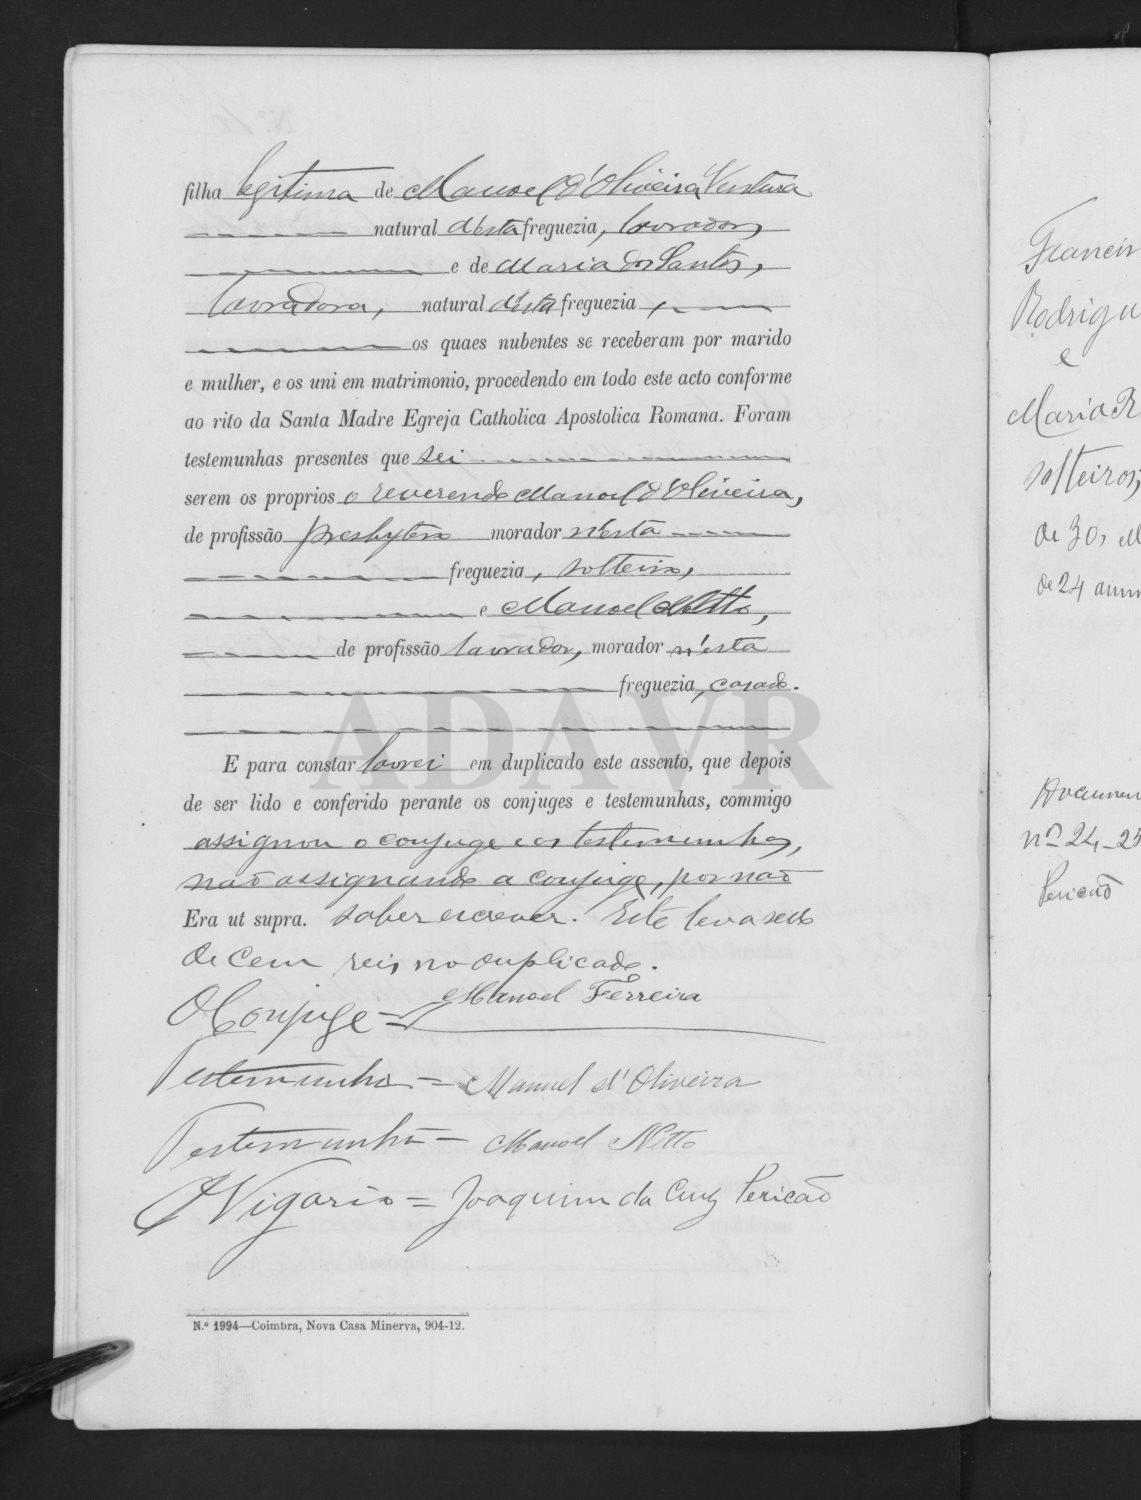 filha legitima de Manoel d'Oliveira Ventura
natural d'esta freguezia, lavrador,
e de Maria dos Santos,
lavradora, natural d'esta freguezia,
os quaes nubentes se receberam por marido
e mulher, e os uni em matrimonio, procedendo em todo este acto conforme
ao rito da Santa Madre Egreja Catholica Apostolica Romana. Foram
testemunhas presentes que sei
serem os proprios o reverendo Manoel d'Oliveira,
de profissão presbytero morador n'esta
freguezia, solteiro,
e Manoel Netto,
de profissão lavrador, morador n'esta
freguezia, casado.
ADAVR
E para constar lavrei em duplicado este assento, que depois
de ser lido e conferido perante os conjuges e testemunhas, commigo
assignou o conjuge e as testemunhas,
não assignando a conjuge, por não
Era ut supra. saber escrever. Este leva sello
de cem reis no duplicado.
O Conjuge = Manoel Ferreira
Testemunha = Manuel d'Oliveira
Testemunha = Manoel Netto
O Vigario = Joaquim da Cruz Pericão
N.º 1994—Coimbra, Nova Casa Minerva, 904-12.
Francis
Rodrigu
e
Maria R
solteiros,
de 30, e
de 24 ann
Documen
nº 24-25
Pericão